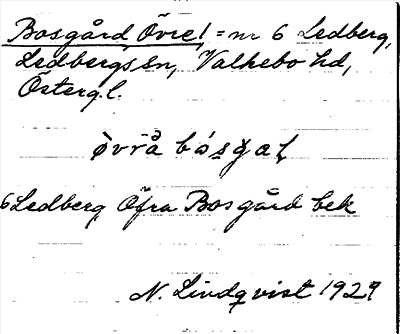 Bosgård Övre! = nr 6 Ledberg,
Ledbergs sn, Valkebo hd,
Österg.l.
òvrå bósgaɭ
6 Ledberg Öfra Bosgård bek
N. Lindqvist 1929